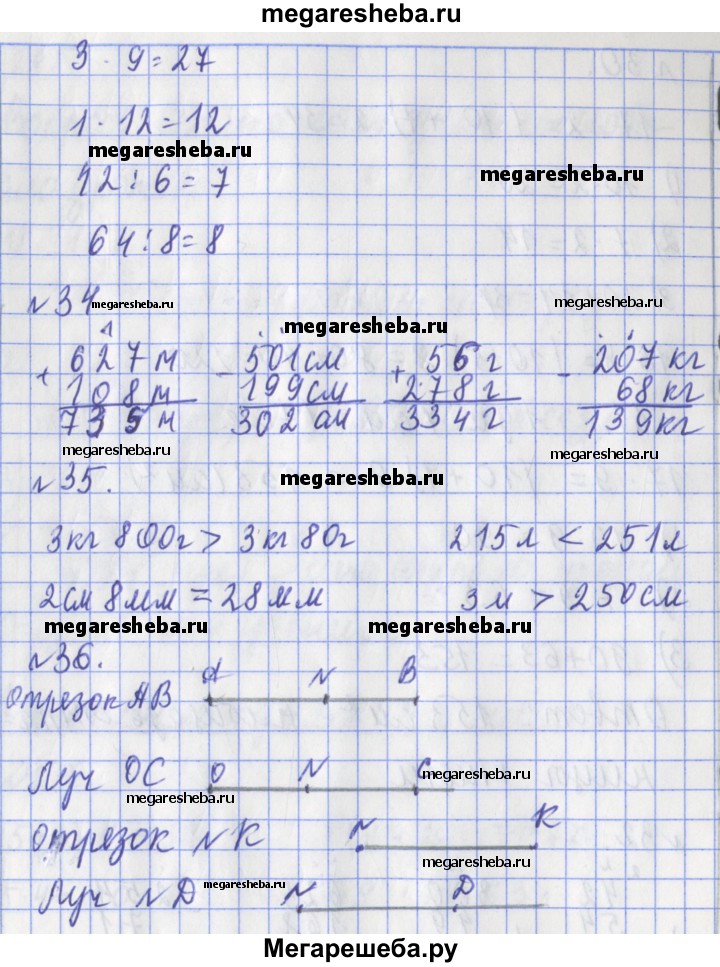 megaresheba.ru
3 · 9 = 27
1 · 12 = 12
megaresheba.ru
megaresheba.ru
42 : 6 = 7
64 : 8 = 8
№34
megaresheba.ru
megaresheba.ru
megaresheba.ru
+ 627 м - 501 см + 56 г - 207 кг
108 м 199 см 278 г 68 кг
735 м 302 см 334 г 139 кг
megaresheba.ru
megaresheba.ru
№35.
megaresheba.ru
3 кг 800 г > 3 кг 80 г 215 л < 251 л
2 см 8 мм = 28 мм 3 м > 250 см
megaresheba.ru
megaresheba.ru
№36.
Отрезок AB A N B
Луч OC O N C
megaresheba.ru
megaresheba.ru
Отрезок NK N K
megaresheba.ru
Луч ND N D
megaresheba.ru
Мегарешеба.ру